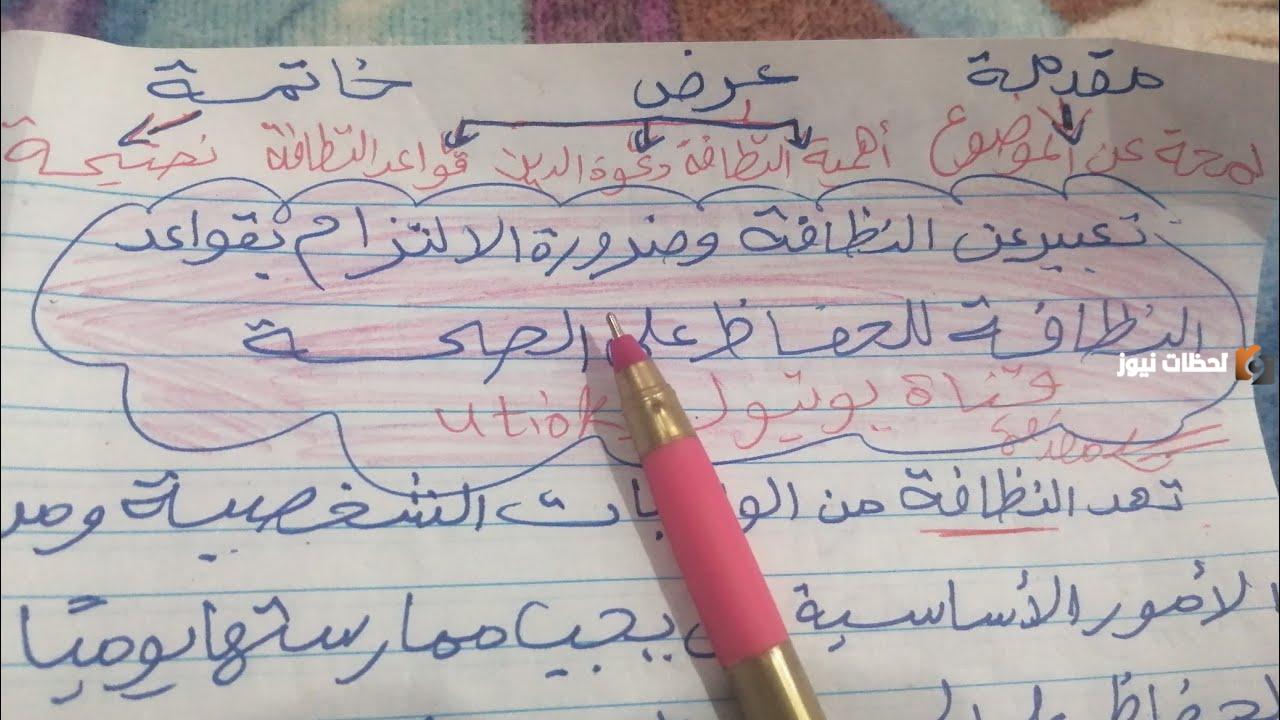 مقدمة عرض خاتمة
لمحة عن الموضوع أهمية النظافة دعوة الدين قواعد النظافة نصيحة
تعبير عن النظافة وضرورة الالتزام بقواعد
النظافة للحفاظ على الصحة
لحظات نيوز
قناة يوتيوب utiok
مقدمة
تعد النظافة من الشخصية ومن
الأمور الأساسية يجب ممارستها يوميًا